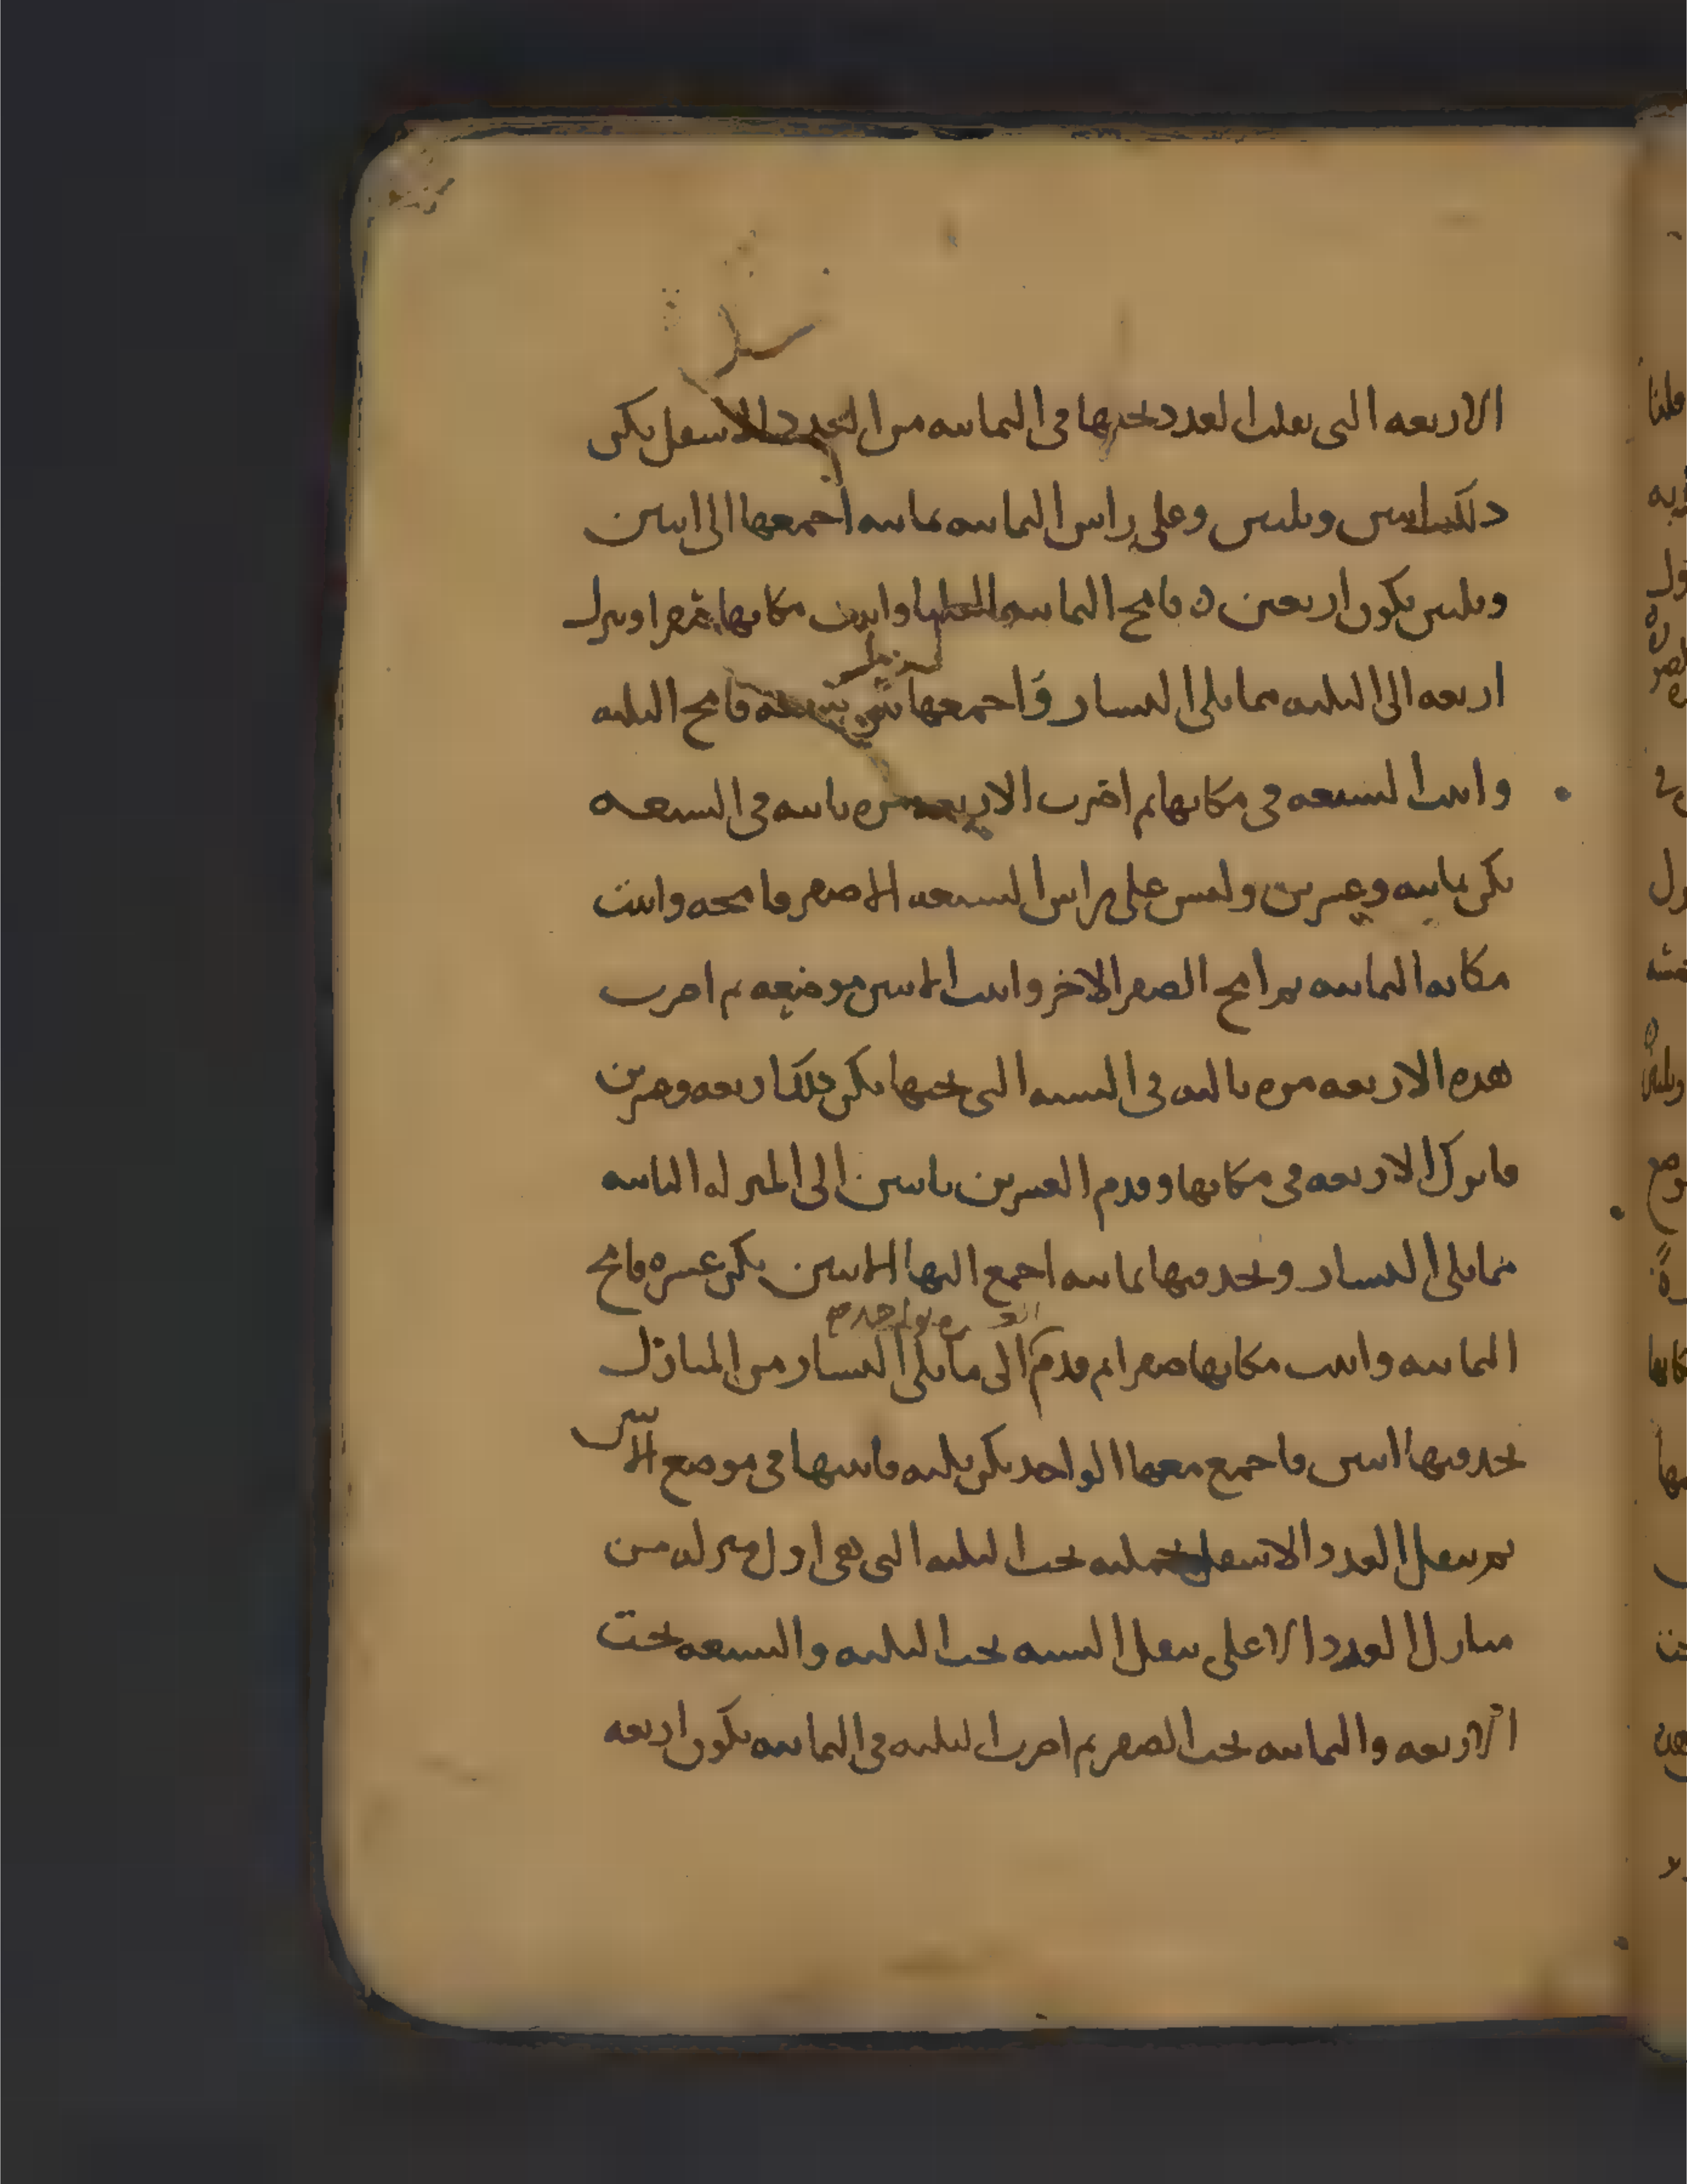 الاربعه التى نقلت العدد تحتها فى الثمانيه من العدد الاسفل يكن
ذلك اثنين وثلثين وعلى راس الثمانيه ثمانيه اجمعها الى اثنين
وثلثين يكون اربعين ه فامح الثمانيه العليا واثبت مكانها صفرا ونزل
اربعه الى الثلثه مما يلى اليسار واجمعها سبعه فامح الثلثه
واثبت السبعه فى مكانها ثم اضرب الاربعه مره ثانيه فى السبعه
يكن ثمانيه وعشرين وليس على راس السبعه الا صفر فامحه واثبت
مكانه الثمانيه ثم امح الصفر الاخر واثبت الاثنين موضعه ثم اضرب
هذه الاربعه مره ثالثه فى السته التى تحتها يكن ذلك اربعه وعشرين
فاترك الاربعه فى مكانها وقدم العشرين باثنين الى المنزله الثانيه
مما يلى اليسار وتجد فيها ثمانيه اجمع اليها الاثنين يكن عشره فامح
الثمانيه واثبت مكانها صفرا ثم قدم الى ما يلى اليسار من المنازل
تجد فيها اثنين فاجمع معها الواحد يكن ثلثه فاثبتها فى موضع الاثنين
ثم تنقل العدد الاسفل بجملته تحت الثلثه التى هى اول منزله من
منازل العدد الاعلى تنقل السته تحت الثلثه والسبعه تحت
الاربعه والثمانيه تحت الصفر ثم اضرب الثلثه فى الثمانيه يكون اربعه